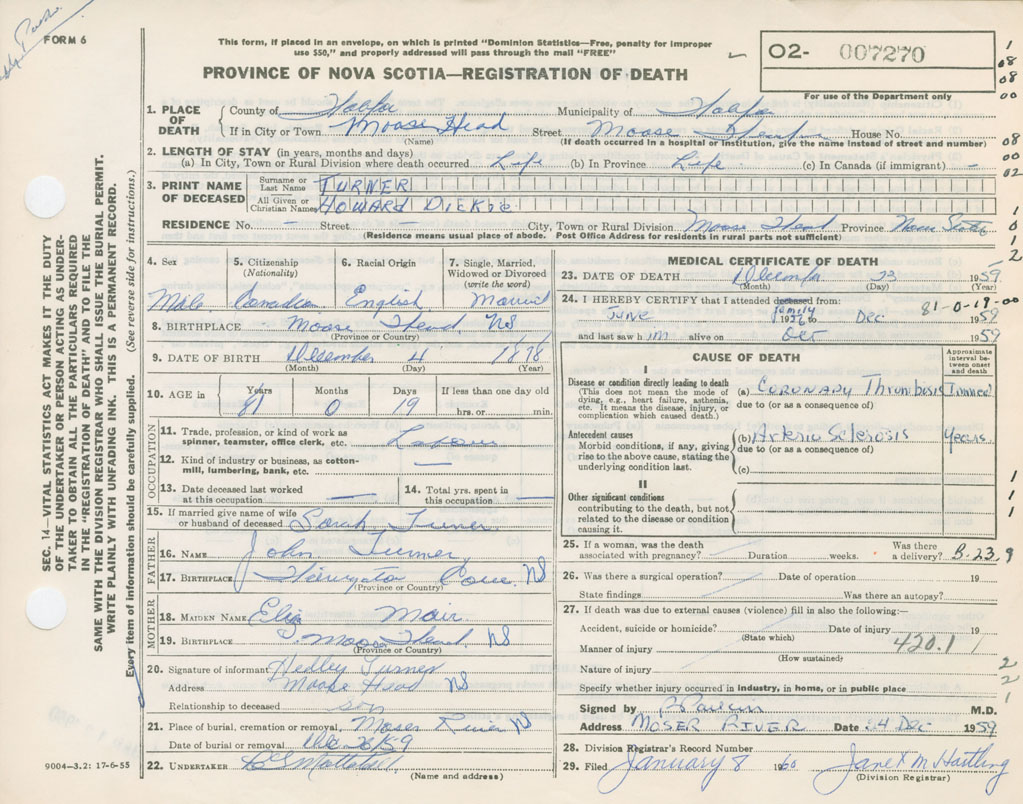 FORM 6
This form, if placed in an envelope, on which is printed "Dominion Statistics—Free, penalty for improper
use $50," and properly addressed will pass through the mail "FREE"
PROVINCE OF NOVA SCOTIA—REGISTRATION OF DEATH
O2- 007270
For use of the Department only
1
08
08
00
08
00
02
1
0
1
2
SEC. 14—VITAL STATISTICS ACT MAKES IT THE DUTY
OF THE UNDERTAKER OR PERSON ACTING AS UNDER-
TAKER TO OBTAIN ALL THE PARTICULARS REQUIRED
IN THE "REGISTRATION OF DEATH" AND TO FILE THE
SAME WITH THE DIVISION REGISTRAR WHO SHALL ISSUE THE BURIAL PERMIT.
WRITE PLAINLY WITH UNFADING INK. THIS IS A PERMANENT RECORD.
Every item of information should be carefully supplied. (See reverse side for instructions.)
1. PLACE OF DEATH
County of Halifax Municipality of Halifax
If in City or Town Moose Head Street Moose Head House No.
(Name) (If death occurred in a hospital or institution, give the name instead of street and number)
2. LENGTH OF STAY (in years, months and days)
(a) In City, Town or Rural Division where death occurred Life (b) In Province Life (c) In Canada (if immigrant) -
3. PRINT NAME OF DECEASED
Surname or Last Name TURNER
All Given or Christian Names HOWARD DICKIE
RESIDENCE No. - Street - City, Town or Rural Division Moose Head Province Nova Scotia
(Residence means usual place of abode. Post Office Address for residents in rural parts not sufficient)
4. Sex 5. Citizenship (Nationality) 6. Racial Origin 7. Single, Married, Widowed or Divorced (write the word)
Male Canadian English Married
8. BIRTHPLACE Moose Head NS
(Province or Country)
9. DATE OF BIRTH December 4 1878
(Month) (Day) (Year)
10. AGE in Years Months Days If less than one day old
81 0 19 hrs. or min.
OCCUPATION
11. Trade, profession, or kind of work as
spinner, teamster, office clerk, etc. Labour
12. Kind of industry or business, as cotton-
mill, lumbering, bank, etc. —
13. Date deceased last worked
at this occupation —
14. Total yrs. spent in
this occupation —
15. If married give name of wife
or husband of deceased Sarah Turner
FATHER
16. NAME John Turner
17. BIRTHPLACE Cove NS
(Province or Country)
MOTHER
18. MAIDEN NAME Eliz Mair
19. BIRTHPLACE Moose Head NS
(Province or Country)
20. Signature of informant Hedley Turner
Address Moose Head NS
Relationship to deceased son
21. Place of burial, cremation or removal, Moser River NS
Date of burial or removal Dec 26/59
22. UNDERTAKER
(Name and address)
9004—3.2: 17-6-55
MEDICAL CERTIFICATE OF DEATH
23. DATE OF DEATH December 23 1959
(Month) (Day) (Year)
24. I HEREBY CERTIFY that I attended deceased from:
family
June 1956 to Dec 1959
81-0-19-00
and last saw him alive on Oct 1959
CAUSE OF DEATH
Approximate interval between onset and death
I
Disease or condition directly leading to death
(This does not mean the mode of
dying, e.g., heart failure, asthenia,
etc. It means the disease, injury, or
complication which caused death.)
(a) Coronary Thrombosis Immed
due to (or as a consequence of)
Antecedent causes
Morbid conditions, if any, giving
rise to the above cause, stating the
underlying condition last.
(b) Arterio Sclerosis Years
due to (or as a consequence of)
(c)
II
Other significant conditions
contributing to the death, but not
related to the disease or condition
causing it.
1
1
1
25. If a woman, was the death
associated with pregnancy? Duration weeks. Was there
a delivery? B.23.9
26. Was there a surgical operation? Date of operation 19
State findings Was there an autopsy?
27. If death was due to external causes (violence) fill in also the following:—
Accident, suicide or homicide? Date of injury 19
(State which)
Manner of injury 420.1
(How sustained)
Nature of injury
2
2
1
Specify whether injury occurred in industry, in home, or in public place
Signed by M.D.
Address MOSER RIVER Date 24 Dec 1959
28. Division Registrar's Record Number
29. Filed January 8 1960 Janet M Hartling
(Division Registrar)